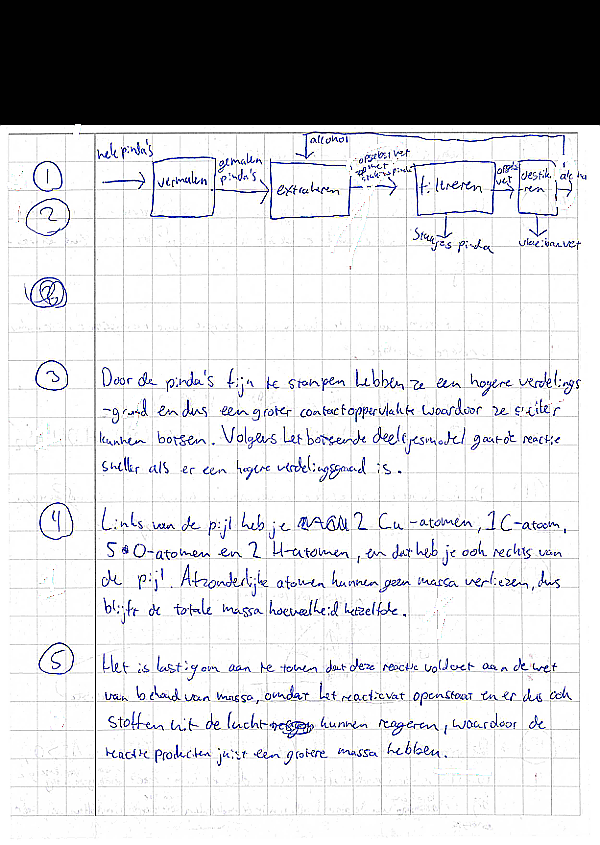 hele pinda's
vermalen
gemalen pinda's
extraheren
alcohol
opgelost vet
met
filtreren
Stukjes pinda
vet
destilleren
vloeibaar vet
1
2
3 Door de pinda's fijn te stampen hebben ze een hogere verdelings
-graad en dus een groter contactoppervlakte waardoor ze sneller
kunnen botsen. Volgens het botsende deeltjesmodel gaat de reactie
sneller als er een hogere verdelingsgraad is.
4 Links van de pijl heb je 2 Cu-atomen, 1 C-atoom,
5 O-atomen en 2 H-atomen, en dat heb je ook rechts van
de pijl. Afzonderlijke atomen kunnen geen massa verliezen, dus
blijft de totale massa hoeveelheid hetzelfde.
5 Het is lastig om aan te tonen dat deze reactie voldoet aan de wet
van behoud van massa, omdat het reactievat openstaat en er dus ook
stoffen uit de lucht kunnen reageren, waardoor de
reactie producten juist een grotere massa hebben.